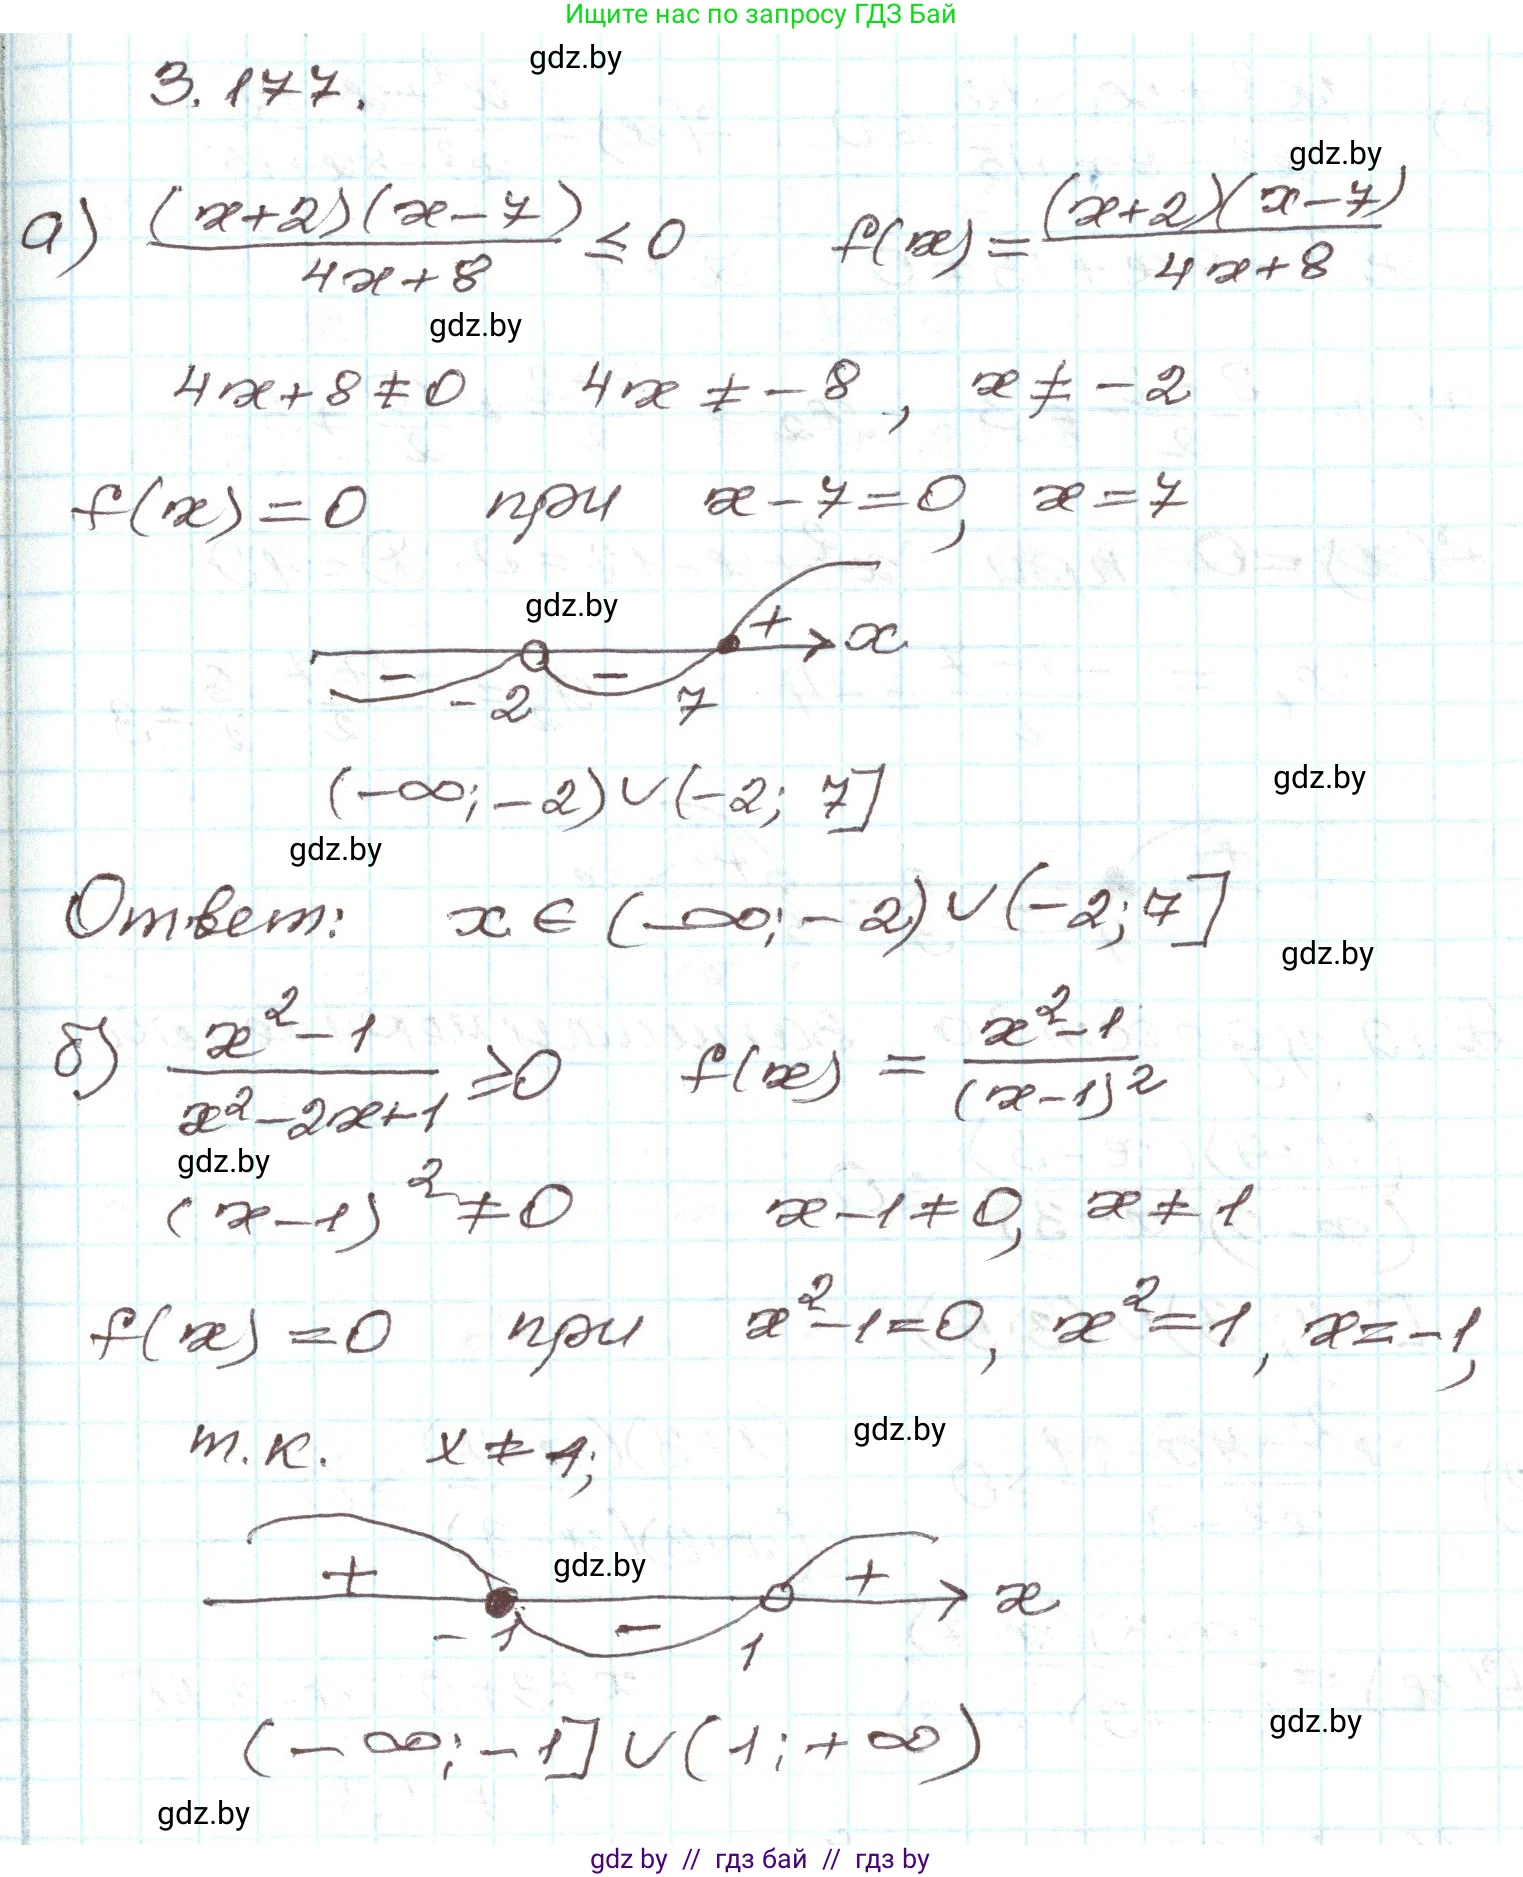 Ищите нас по запросу ГДЗ Бай
gdz.by
3.177.
gdz.by
а) (x+2)(x-7)/(4x+8) ≤ 0 f(x) = (x+2)(x-7)/(4x+8)
gdz.by
4x+8≠0 4x ≠ -8, x ≠ -2
f(x)=0 при x-7=0, x=7
gdz.by
- - + x
-2 7
(-∞; -2) ∪ (-2; 7]
gdz.by
gdz.by
Ответ: x ∈ (-∞; -2) ∪ (-2; 7]
gdz.by
б) (x²-1)/(x²-2x+1) ≥ 0 f(x) = (x²-1)/(x-1)²
gdz.by
(x-1)² ≠ 0 x-1≠0, x≠1
f(x)=0 при x²-1=0, x²=1, x=-1,
т.к. x ≠ 1;
gdz.by
gdz.by
+ - + x
-1 1
(-∞; -1] ∪ (1; +∞)
gdz.by
gdz.by
gdz by // гдз бай // гдз by